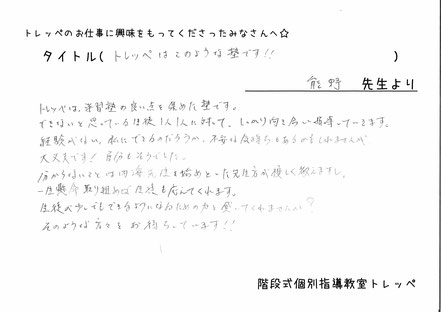 トレッペのお仕事に興味をもってくださったみなさんへ☆
タイトル( トレッペはこのような塾です!! )
熊野 先生より
トレッペは、学習塾の良い点を集めた塾です。
できないと思っている生徒1人1人に対して、しっかり向き合い指導していきます。
経験がない、私にできるのだろうか、不安な気持ちもあるかもしれませんが、
大丈夫です！自分もそうでした。
分からないことは内海先生を始めとした先生方が優しく教えますし、
一生懸命取り組めば生徒も応えてくれます。
生徒が少しでもできるようになるための力を貸してくれませんか？
そのような方々をお待ちしています!!
階段式個別指導教室トレッペ